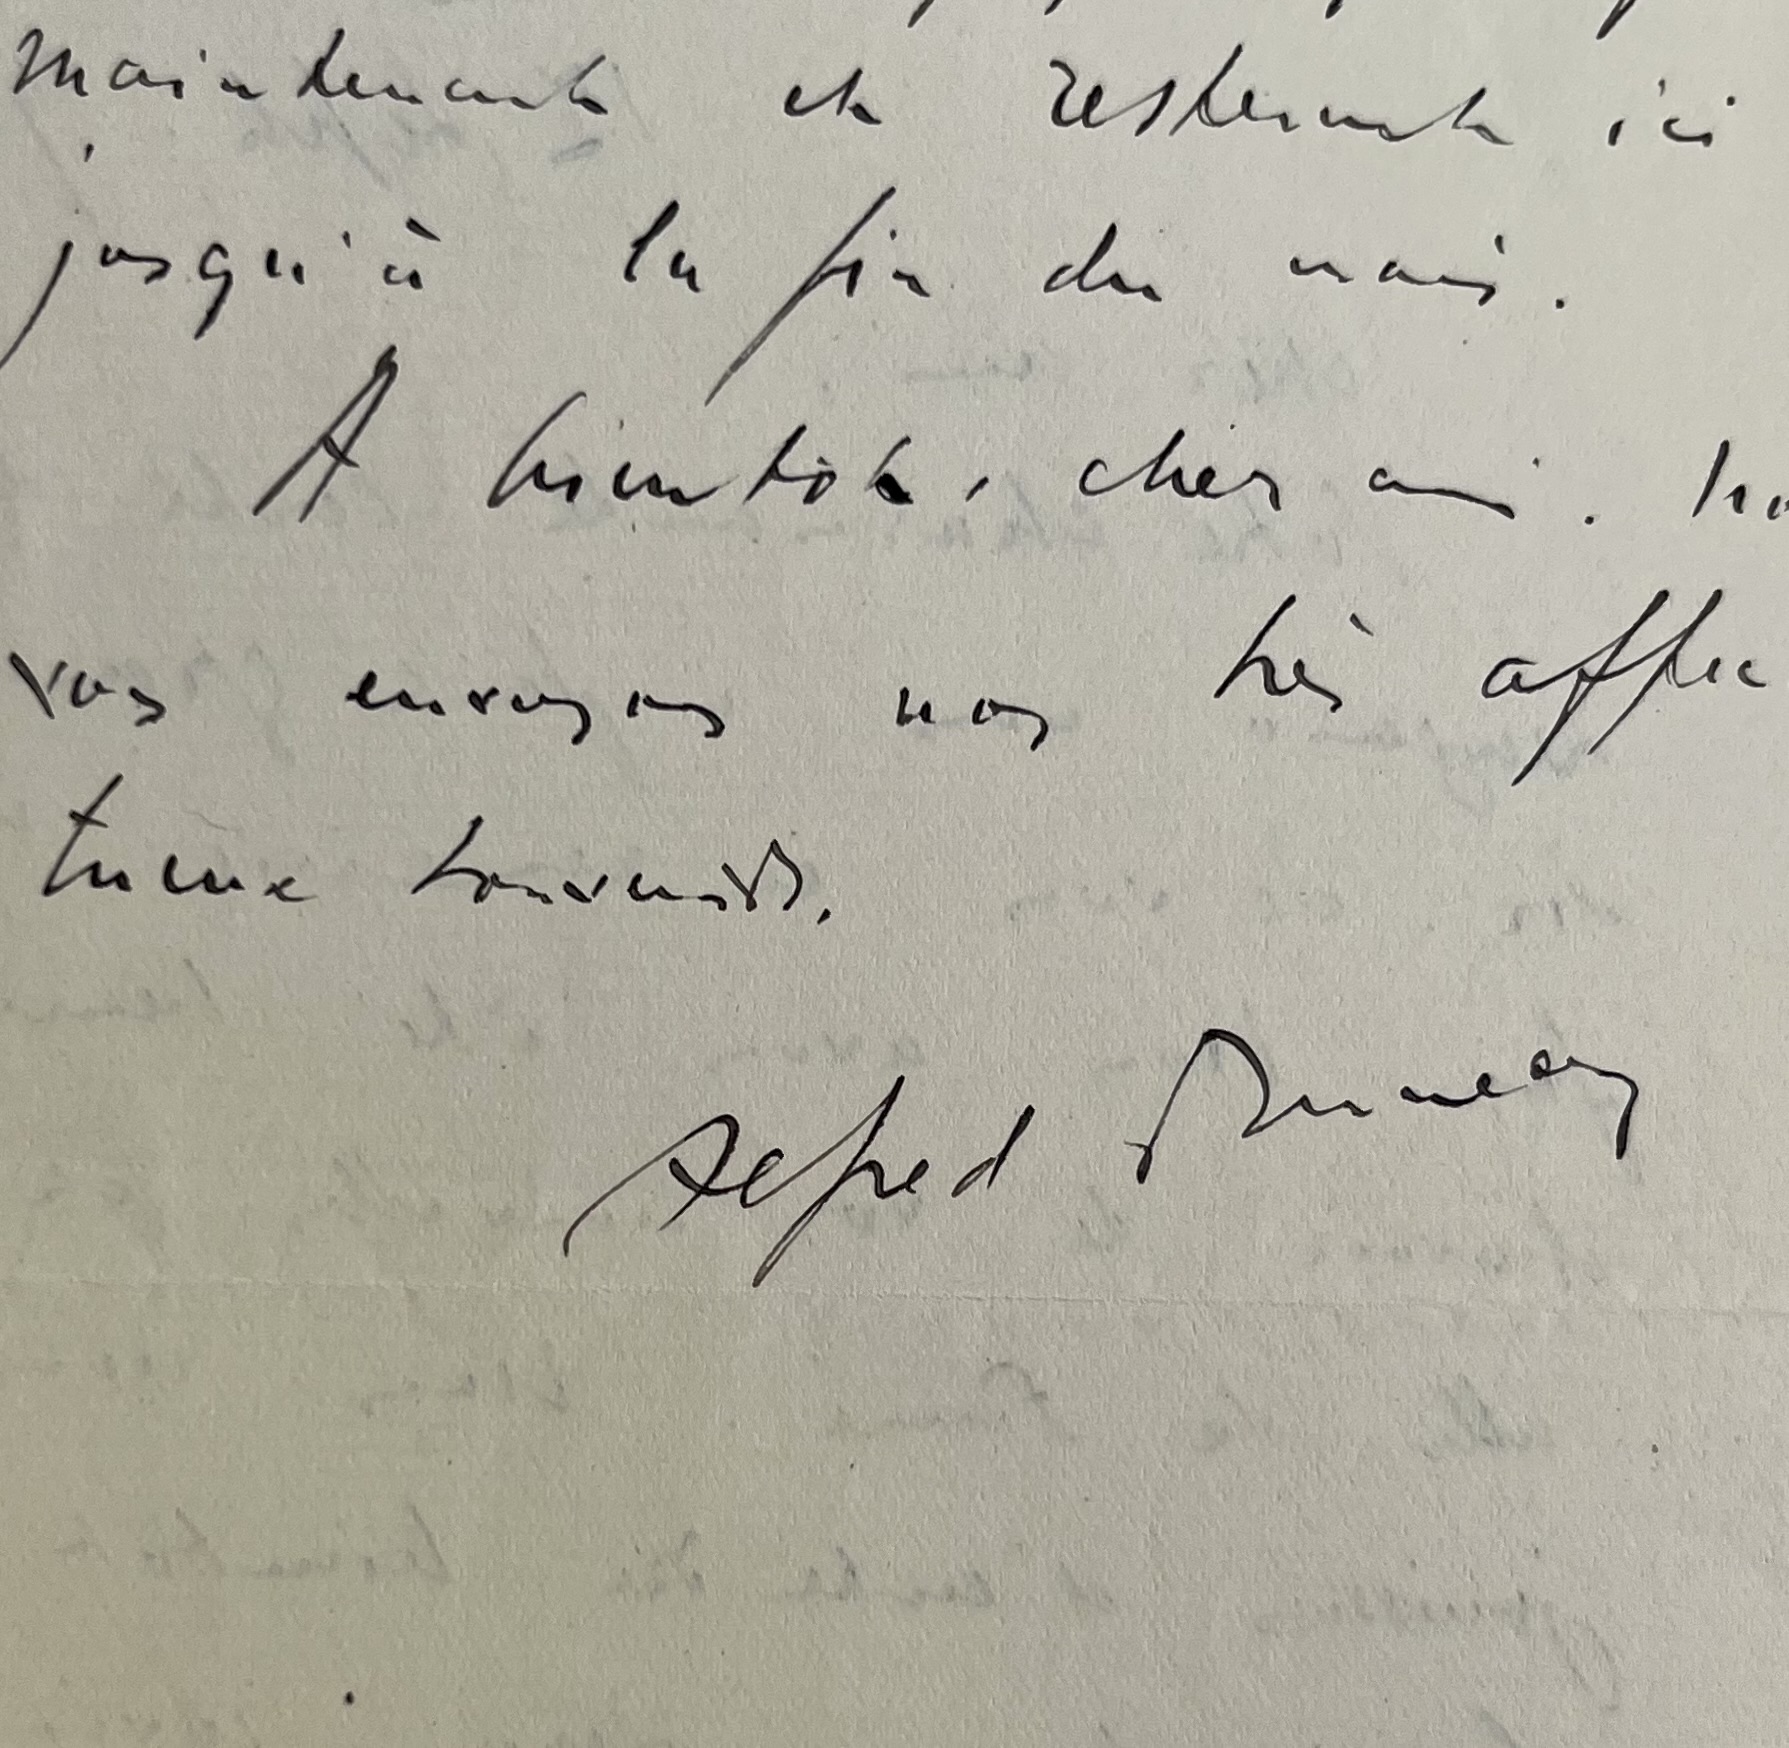 maintenant et resteront ici
jusqu'à la fin du mois.
A bientôt, cher ami. No
vos envoyons nos très affec
tueux souvenirs.
Alfred Bruneau